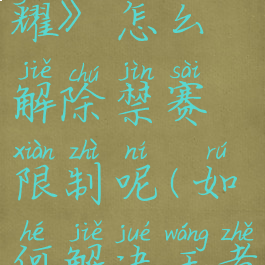 耀》怎么
jiě chú jìn sài
解除禁赛
xiàn zhì ní rú
限制呢(如
hé jiě jué wáng zhě
何解决王者